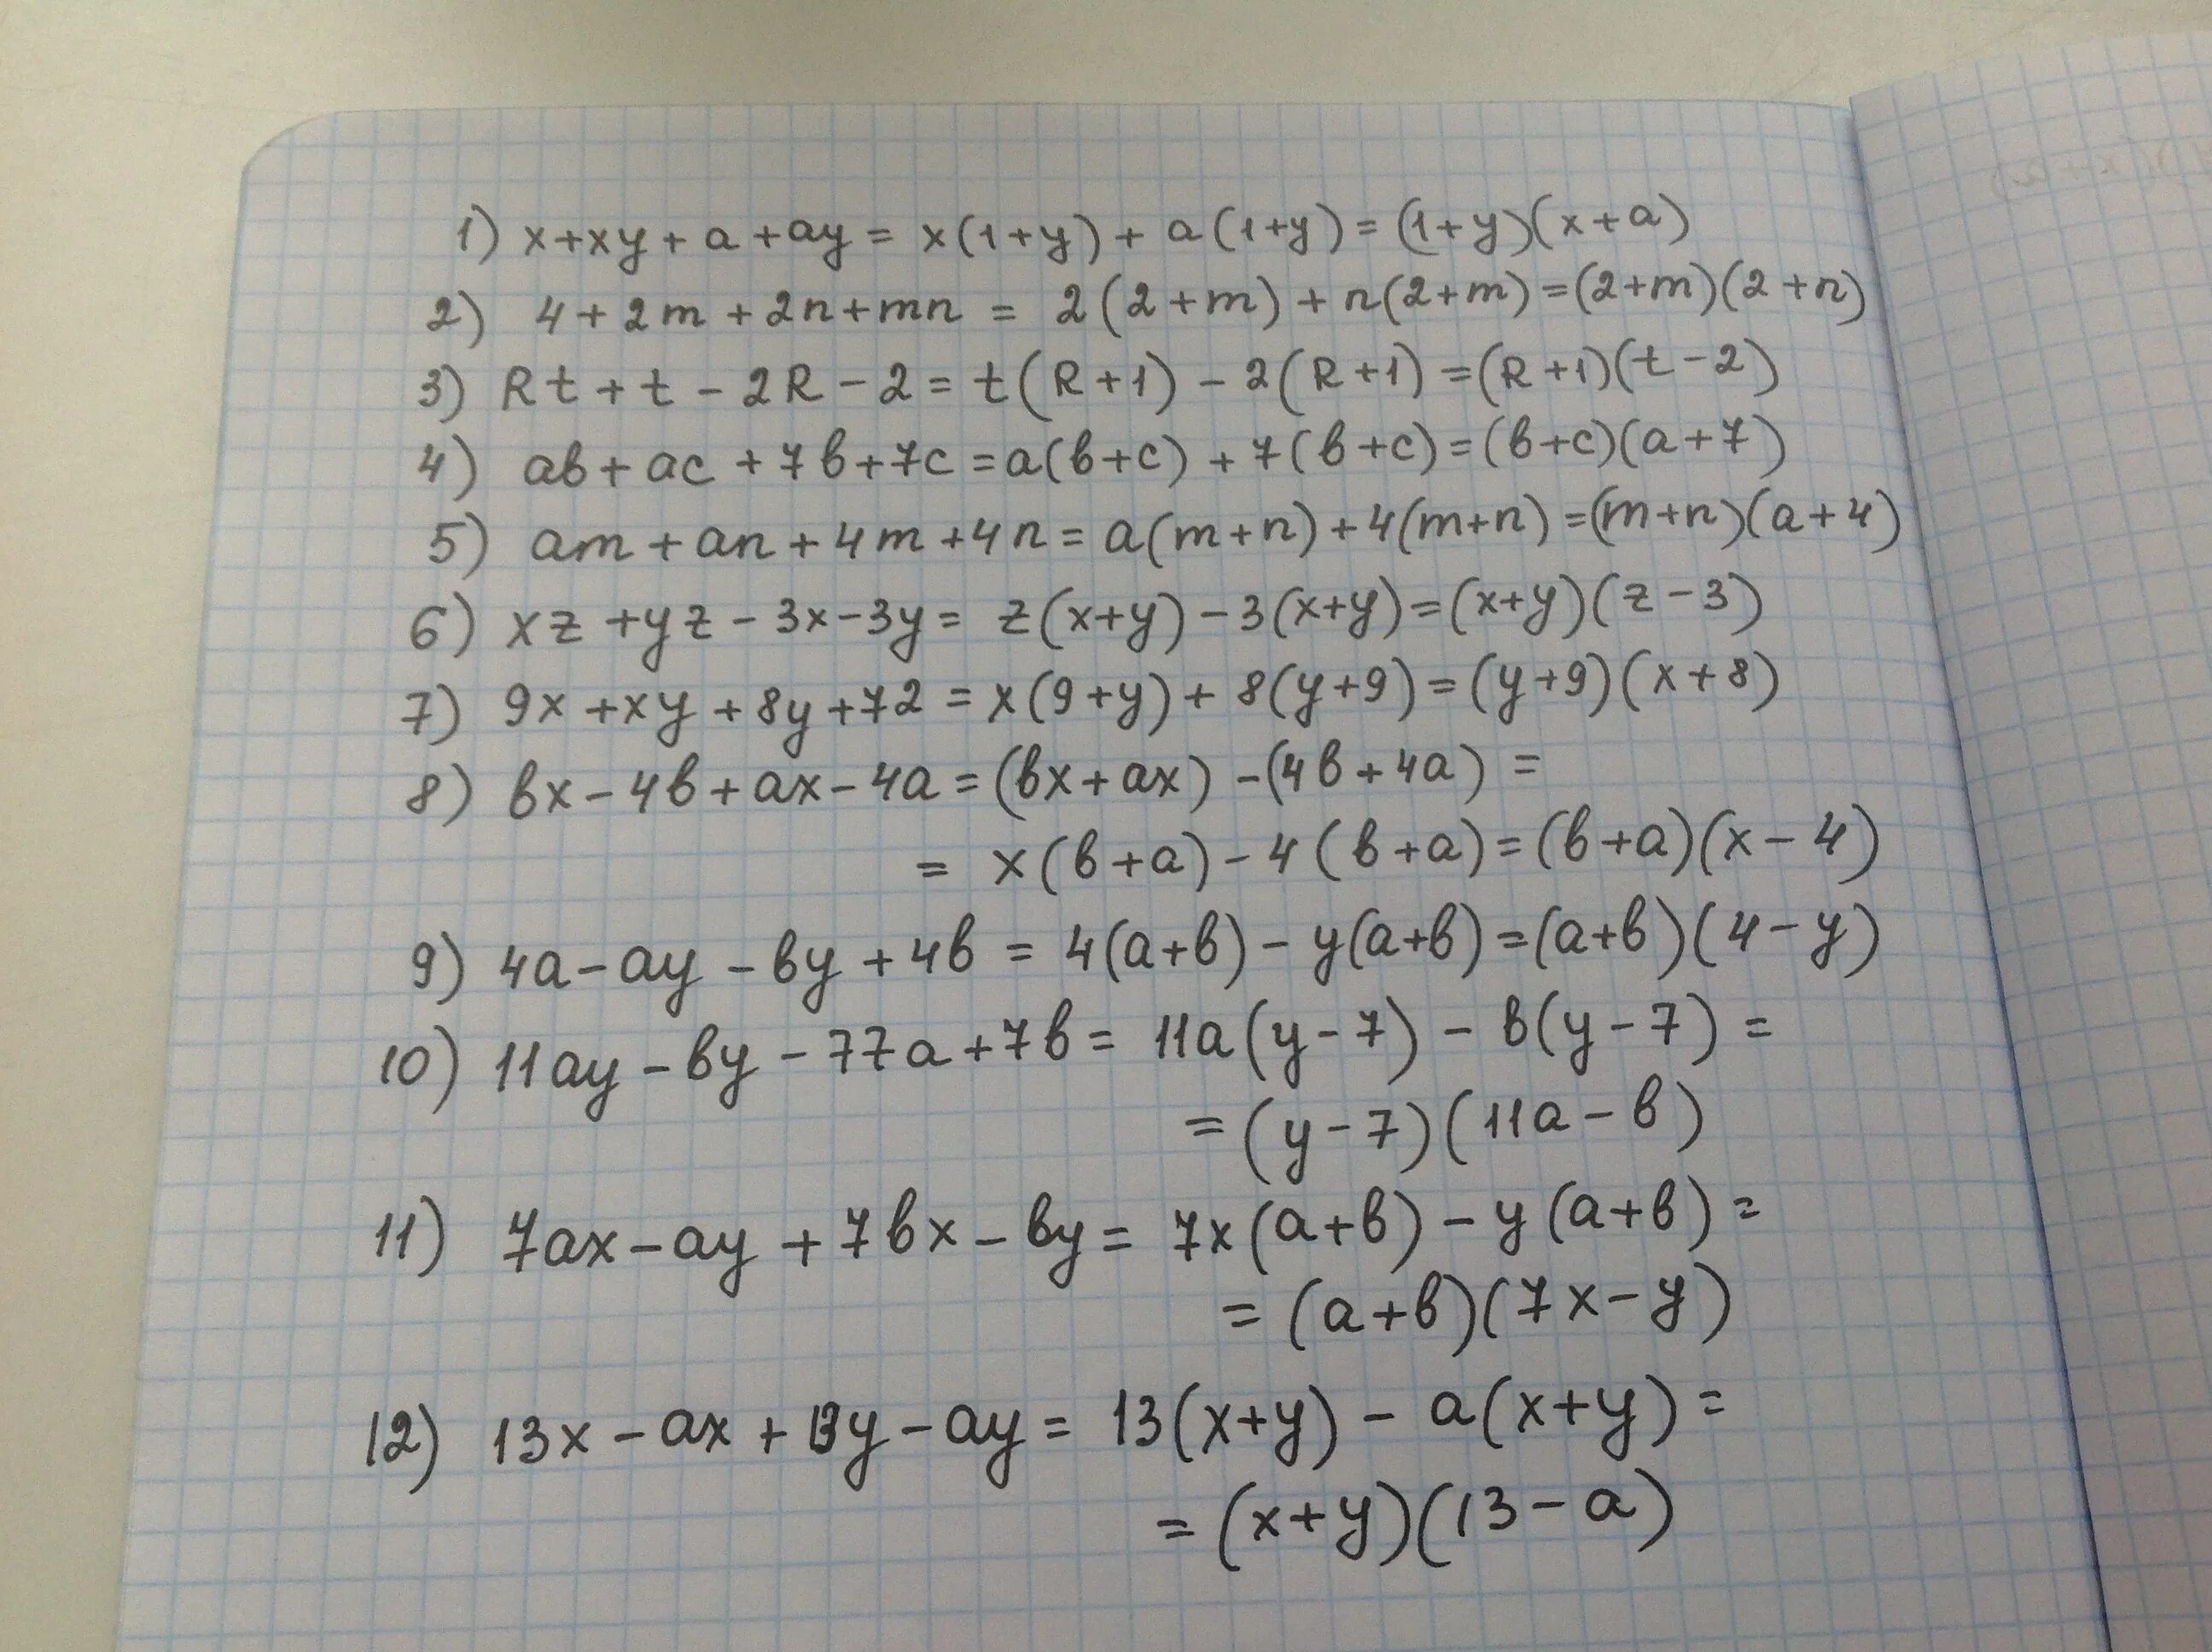 1) x+xy+a+ay= x(1+y)+a(1+y)=(1+y)(x+a)
2) 4+2m+2n+mn = 2(2+m)+n(2+m)=(2+m)(2+n)
3) Rt+t-2R-2=t(R+1)-2(R+1)=(R+1)(t-2)
4) aв+ac+7в+7c=a(в+c)+7(в+c)=(в+c)(a+7)
5) am+an+4m+4n=a(m+n)+4(m+n)=(m+n)(a+4)
6) xz+yz-3x-3y= z(x+y)-3(x+y)=(x+y)(z-3)
7) 9x+xy+8y+72=x(9+y)+8(y+9)=(y+9)(x+8)
8) вx-4в+ax-4a=(вx+ax)-(4в+4a)=
= x(в+a)-4(в+a)=(в+a)(x-4)
9) 4a-ay-вy+4в=4(a+в)-y(a+в)=(a+в)(4-y)
10) 11ay-вy-77a+7в=11a(y-7)-в(y-7)=
=(y-7)(11a-в)
11) 7ax-ay+7вx-вy=7x(a+в)-y(a+в)=
=(a+в)(7x-y)
12) 13x-ax+13y-ay=13(x+y)-a(x+y)=
=(x+y)(13-a)